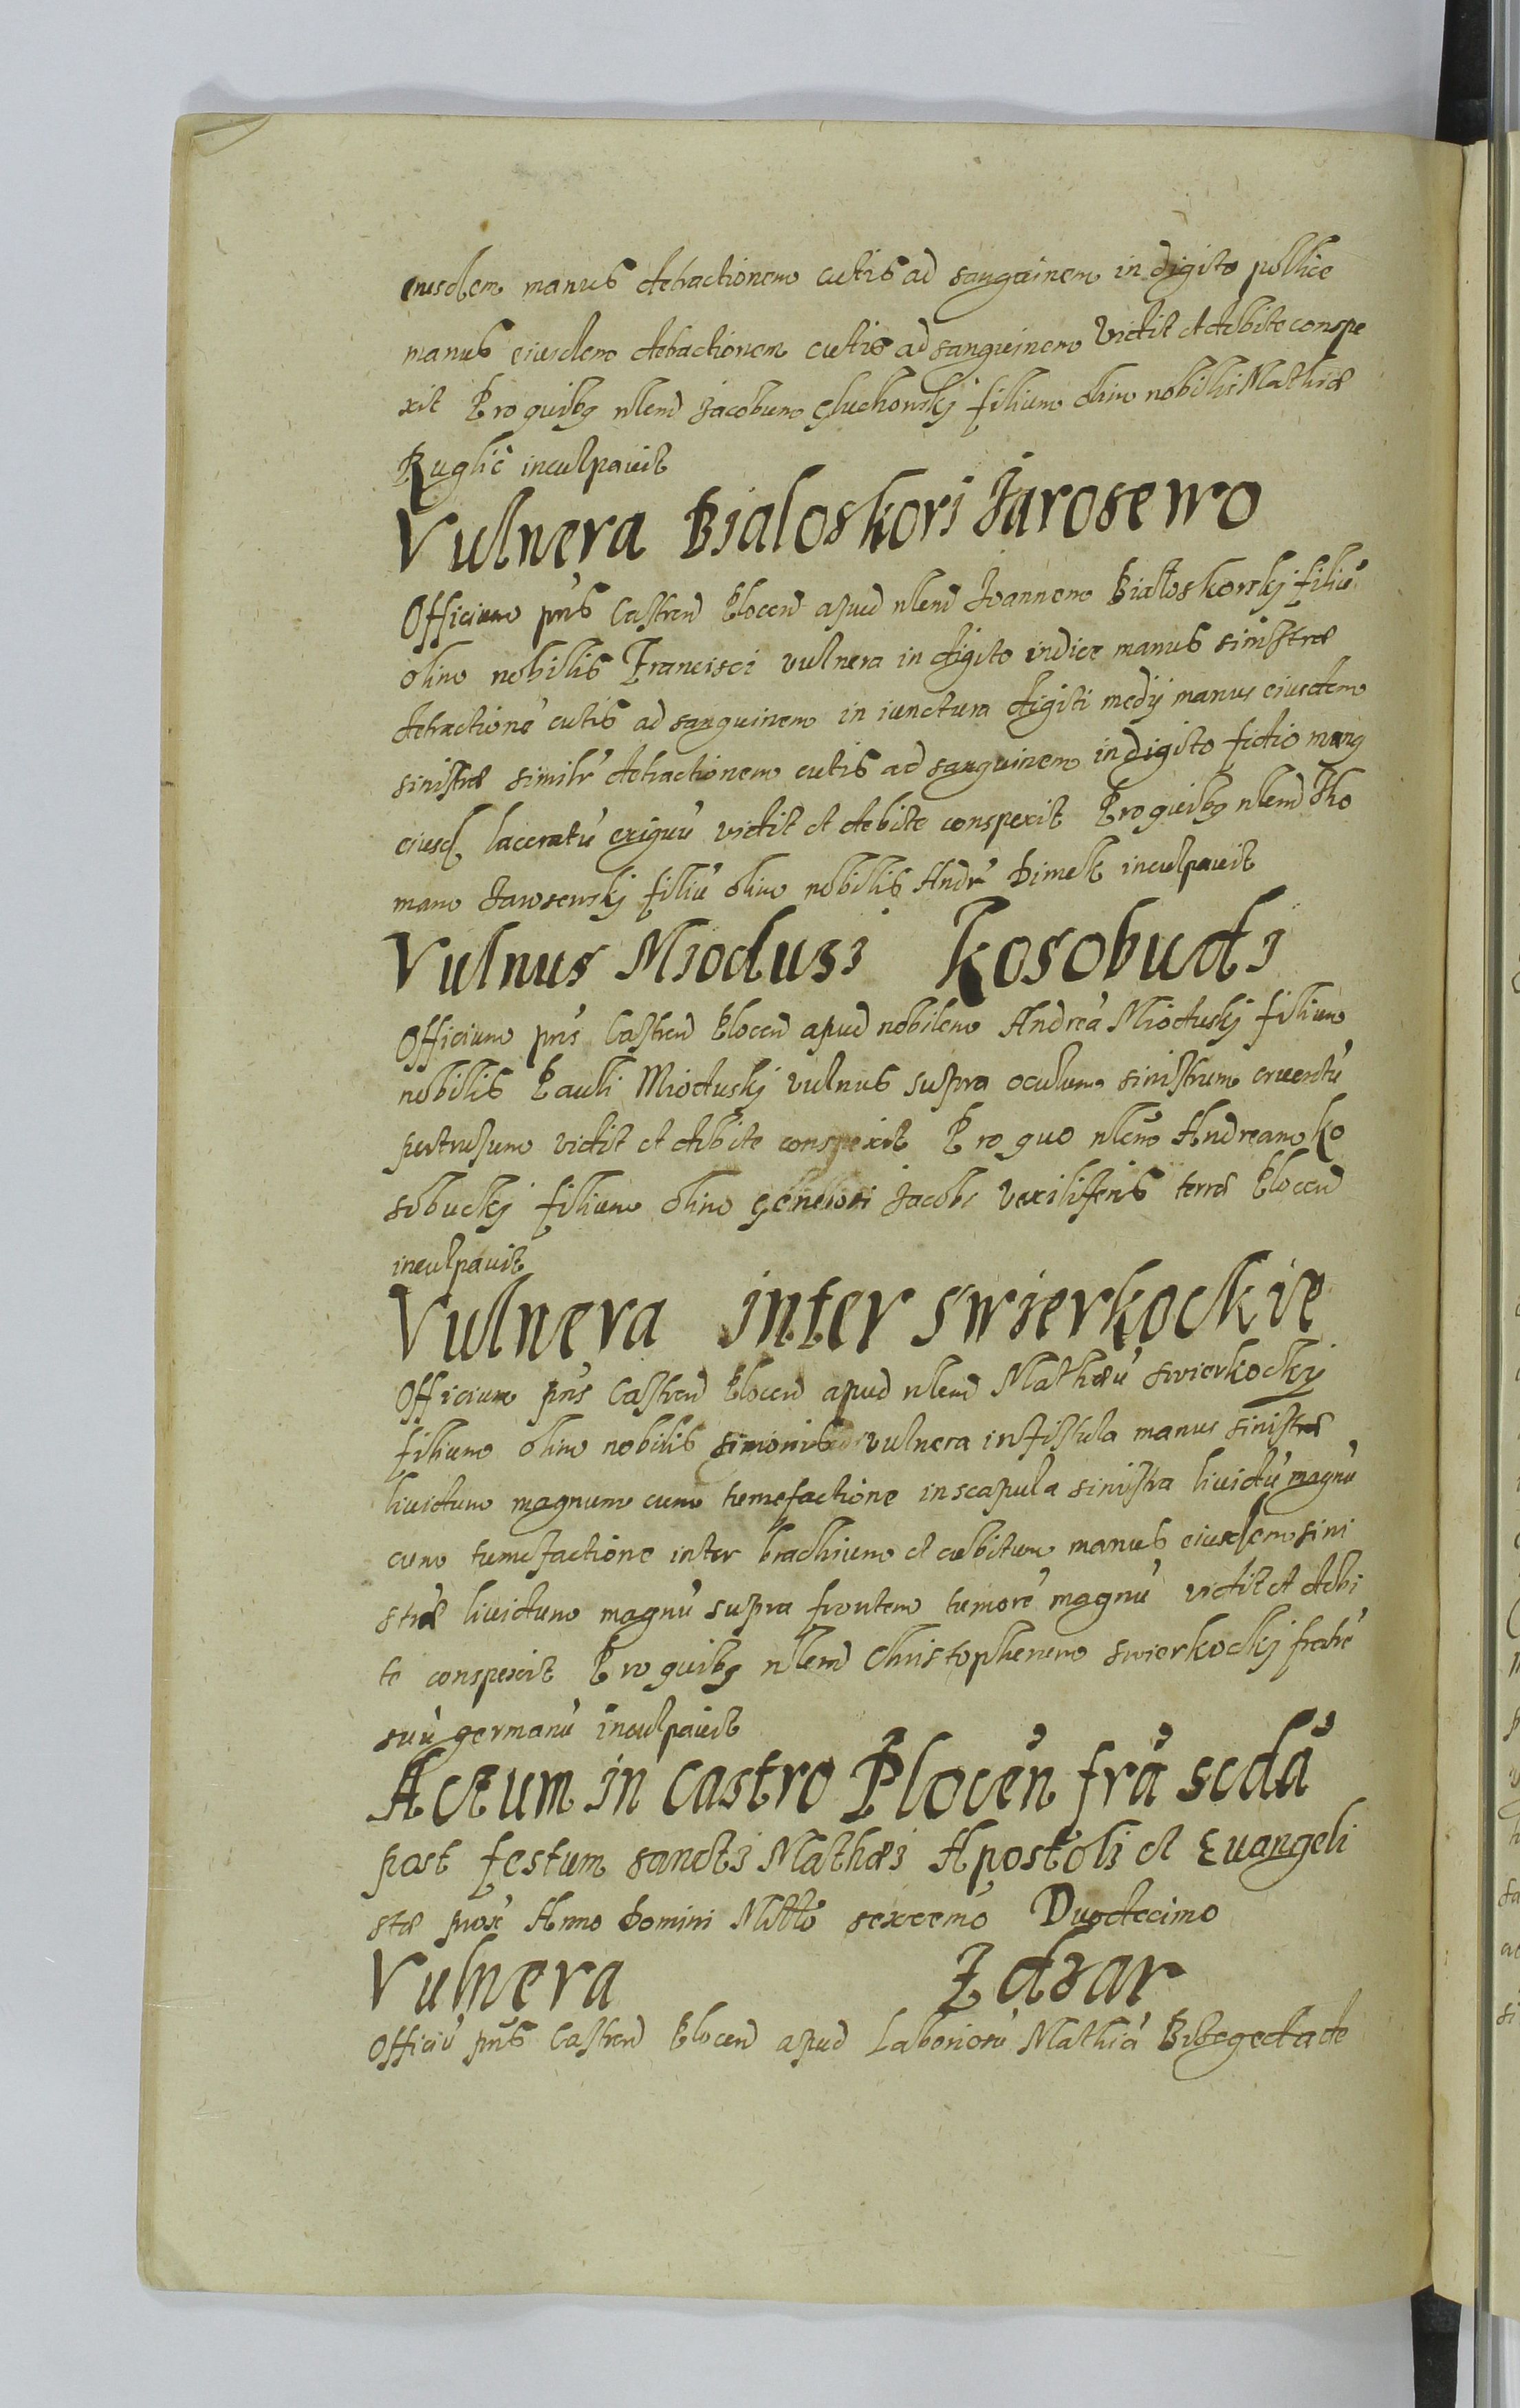 eiusdem manus detractionem cutis ad sanguinem in digito pollice
manus eiusdem detractionem cutis ad sanguinem vidit et debite conspe
xit Pro quibꝫ nlem̄ Jacobum Gluchowskj filium olim nobilis Mathiæ
Kuglic̄ inculpavit
Vulnera Bialoskori Jarosewo
Officium pn̄s Castren̄ Plocen̄ apud nlem̄ Joannem Białoskorskj filiū
olim nobilis Francisci vulnera in digito indice manus sinistræ
detractionē cutis ad sanguinem in iunctura digiti medij manus eiusdem
sinistræ similr̄ detractionem cutis ad sanguinem in digito fictio manꝯ
eiusd laceratū exiguū vidit et debite conspexit Pro quibꝫ nlem̄ Tho
mam Jarosewskj filiū olim nobilis Andr̄ Dimek inculpavit
Vulnus Miodusi Kosobudi
Officium pn̄s Castren̄ Plocen̄ apud nobilem Andreā Mioduskj filium
nobilis Pauli Mioduskj vulnus supra oculum sinistrum cruentū
pertusum vidit et debite conspexit Pro quo nlem̄ Andream Ko
sobuckj filium olim Generosi Jacobi Vexiliferis terræ Plocen̄
inculpavit
Vulnera inter Swierkockie
Officium pn̄s Castren̄ Plocen̄ apud nlem̄ Mathæū Swierkockj
filium olim nobilis Simonis vulnera in fistula manus sinistræ
lividum magnum cum tumefactione in scapula sinistra lividū magnū
cum tumefactione inter brachium et cubitum manus eiusdem sini
stræ lividum magnū supra frontem tumorē magnū vidit et debi
te conspexit Pro quibꝫ nlem̄ Christopherum Swierkockj fratrē
suū germanū inculpavit
Actum in Castro Plocen̄ frā scdā
post festum sancti Mathæi Apostoli et Evangeli
stæ prox̄ Anno Domini Mill̄o sexcen̄o Duodecimo
Vulnera Zdzar
Officiū pn̄s Castren̄ Plocen̄ apud Laboriosū Mathiā de